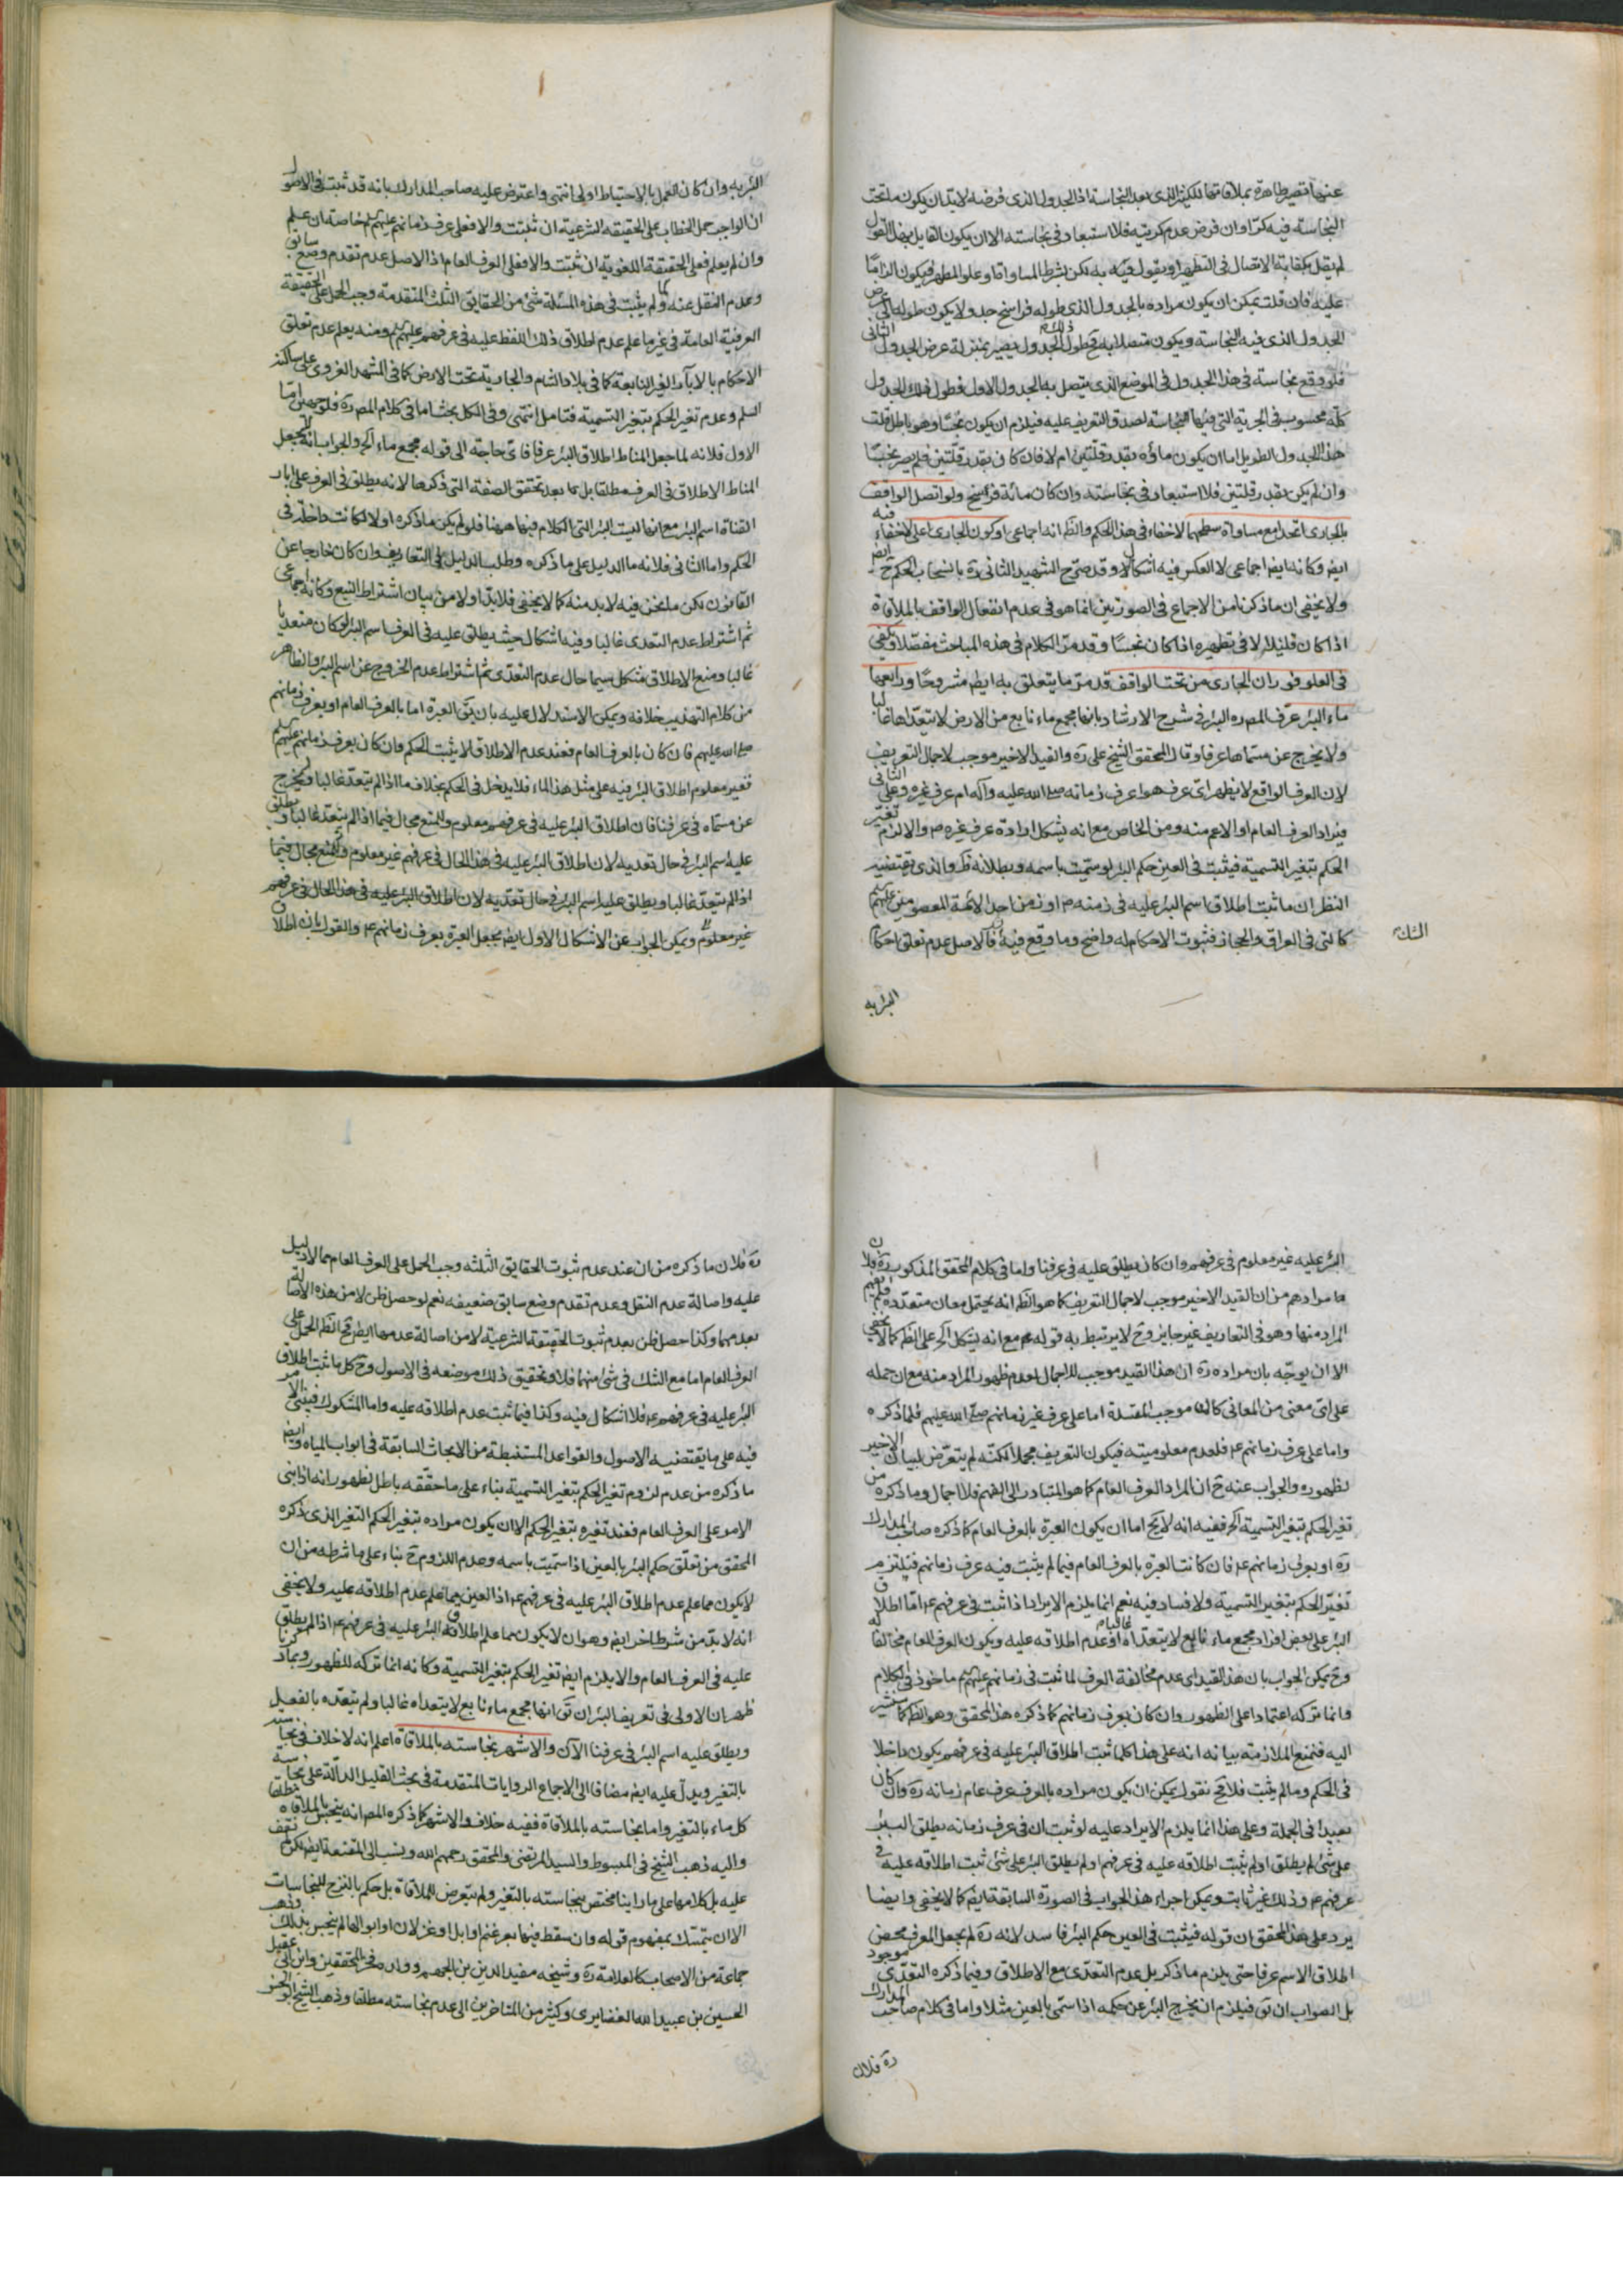 عنها فتصير طاهرة بملاقاتها للكثير الذى بعد النجاسة اذ الجدول الذى فرضه لابد ان يكون ما تحت
النجاسة فيه كرا وان فرض عدم كريته فلا استبعاد فى نجاسته الا ان يكون القايل بهذا القول
لم يقل بكفاية الاتصال فى التطهير او يقول فيه به لكن بشرط المساواة او علو المطهر فيكون الزاما
عليه فان قلت يمكن ان يكون مراده بالجدول الذى طوله فراسخ جدولا يكون طوله فى عرض
الجدول الذى فيه النجاسة ويكون متصلا به فح طول ذلك الجدول يصير بمنزلة عرض الجدول الثانى
فلو وقع نجاسة فى هذا الجدول فى الموضع الذى يتصل به الجدول الاول فطول ذلك الجدول
كله محسوب فى الجرية التى فيها النجاسة لصدق التعريف عليه فيلزم ان يكون نجسا وهو باطل قلت
هذا الجدول الطويل اما ان يكون ماؤه بقدر قلتين ام لا فان كان بقدر قلتين فلم يصر نجسا
وان لم يكن بقدر قلتين فلا استبعاد فى نجاسته وان كان مائة فراسخ ولو اتصل الواقف
بالجارى اتحدا مع مساواة سطحهما لا خفاء فى هذا الحكم والظ انه اجماعى او كون الجارى اعلى لا خفاء فيه
ايض وكانه ايض اجماعى لا العكس فيه اشكال وقد صرح الشهيد الثانى ره بانسحاب الحكم ح ايض
ولا يخفى ان ما ذكرنا من الاجماع فى الصورتين انما هو فى عدم انفعال الواقف بالملاقاة
اذا كان قليلا لا فى تطهيره اذا كان نجسا وقد مر الكلام فى هذه المباحث مفصلا ويكفى
فى العلو فوران الجارى من تحت الواقف قد مر ما يتعلق به ايض مشروحا ورابعها
ماء البئر عرف المص ره البئر فى شرح الارشاد بانها مجمع ماء نابع من الارض لا يتعداها غالبا
ولا يخرج عن مسماها عرفا وقال المحقق الشيخ على ره والقيد الاخير موجب لاجمال التعريف
لان العرف الواقع لا يظهر اى عرف هو اعرف زمانه صلى الله عليه وآله ام عرف غيره وعلى الثانى
فيراد العرف العام او الاعم منه ومن الخاص مع انه يشكل ارادة عرف غيره ص والا لزم تغير
الحكم بتغير التسمية فيثبت فى العين حكم البئر لو سميت باسمه وبطلانه ظ والذى يقتضيه
النظر ان ما ثبت اطلاق اسم البئر عليه فى زمنه ص او زمن احد الائمة المعصومين عليهم
كالتى فى العراق والحجاز فثبوت الاحكام له واضح وما وقع فيه الشك فالاصل عدم تعلق احكام
البئر به
البئر به وان كان العمل بالاحتياط اولى انتهى واعترض عليه صاحب المدارك بانه قد ثبت فى الاصول
ان الواجب حمل الخطاب على الحقيقة الشرعية ان ثبتت والا فعلى عرف زمانهم عليهم خاصة ان علم
وان لم يعلم فعلى الحقيقة اللغوية ان ثبتت والا فعلى العرف العام اذ الاصل عدم تقدم وضع سابق
وعدم النقل عنه ولما لم يثبت فى هذه المسئلة شئ من الحقايق الثلث المتقدمة وجب الحمل على الحقيقة
العرفية العامة فى غير ما علم عدم اطلاق ذلك اللفظ عليه فى عرفهم عليهم ومنه يعلم عدم تعلق
الاحكام بالآبار الغير النابعة كما فى بلاد الشام والجارية تحت الارض كما فى المشهد الغروى على ساكنه
السلم وعدم تغير الحكم بتغير التسمية فتامل انتهى وفى الكل بحث اما فى كلام المص ره فلوجهين اما
الاول فلانه لما جعل المناط اطلاق البئر عرفا فاى حاجة الى قوله مجمع ماء آلخ والجواب انه لم يجعل
المناط الاطلاق فى العرف مطلقا بل بعد تحقق الصفة التى ذكرها لانه يطلق فى العرف على ابار
القناة اسم البئر مع انها ليست البئر التى الكلام فيها ههنا فلو لم يكن ما ذكره اولا لكانت داخلة فى
الحكم واما الثانى فلانه ما الدليل على ما ذكره وطلب الدليل فى التعاريف وان كان خارجا عن
القانون لكن ما نحن فيه لابد منه كما لا يخفى فلابد اولا من بيان اشتراط النبع وكانه اجماعى
ثم اشتراط عدم التعدى غالبا وفيه اشكال حيث يطلق عليه فى العرف اسم البئر لو كان متعديا
غالبا ومنع الاطلاق مشكل سيما حال عدم التعدى ثم اشتراط عدم الخروج عن اسم البئر والظاهر
من كلام التهذيب خلافه ويمكن الاستدلال عليه بان يق العبرة اما بالعرف العام او بعرف زمانهم
صلى الله عليهم فان كان بالعرف العام فعند عدم الاطلاق لا يثبت الحكم وان كان بعرف زمانهم عليهم
فغير معلوم اطلاق البئر فيه على مثل هذا الماء فلا يدخل فى الحكم بخلاف ما اذا لم يتعد غالبا ولم يخرج
عن مسماه فى عرفنا فان اطلاق البئر عليه فى عرفهم معلوم وللمنع مجال فيما اذا لم يتعد غالبا ويطلق
عليه اسم البئر فى حال تعديه لان اطلاق البئر عليه فى هذا الحال فى عرفهم غير معلوم وللمنع مجال فيما
اذا لم يتعد غالبا ويطلق عليه اسم البئر فى حال تعديه لان اطلاق البئر عليه فى هذا الحال فى عرفهم
غير معلوم ويمكن الجواب عن الاشكال الاول ايض بجعل العبرة بعرف زمانهم عم والقول بان اطلاق
البئر عليه غير معلوم فى عرفهم وان كان يطلق عليه فى عرفنا واما فى كلام المحقق المذكور ره فلان
ما مرادهم من ان القيد الاخير موجب لاجمال التعريف كما هو الظ انه يحتمل معان متعددة فلم يعلم
المراد منها وهو فى التعاريف غير جايز وح لا يرتبط به قوله مع انه يشكل آلخ على الظ كما لا يخفى
الا ان يوجه بان مراده ره ان هذا القيد موجب للاجمال لعدم ظهور المراد منه مع ان حمله
على اى معنى من المعانى كان موجب للمفسدة اما على عرف غير زمانهم صلى الله عليهم فلما ذكره
واما على عرف زمانهم عم فلعدم معلوميته فيكون التعريف مجملا لكنه لم يتعرض لبيان الاخير
لظهوره والجواب عنه ح ان المراد العرف العام كما هو المتبادر الى الفهم فلا اجمال وما ذكره من
تغير الحكم بتغير التسمية آلخ ففيه انه لا يخ اما ان يكون العبرة بالعرف العام كما ذكره صاحب المدارك
ره او بعرف زمانهم عم فان كانت العبرة بالعرف العام فيما لم يثبت فيه عرف زمانهم فيلتزم
تغير الحكم بتغير التسمية ولا فساد فيه نعم انما يلزم الايراد اذا ثبت فى عرفهم عم اما اطلاق
البئر على بعض افراد مجمع ماء نابع لا يتعداه غالبا او عدم اطلاقه عليه ويكون العرف العام مخالفا له
وح يمكن الجواب بان هذا القيد اى عدم مخالفة العرف لما ثبت فى زمانهم عليهم ماخوذ فى الكلام
وانما تركه اعتمادا على الظهور وان كان بعرف زمانهم كما ذكره هذا المحقق وهو الظ كما سنشير
اليه فنمنع الملازمة بيانه انه على هذا كلما ثبت اطلاق البئر عليه فى عرفهم يكون داخلا
فى الحكم وما لم يثبت فلا فح نقول يمكن ان يكون مراده بالعرف عرف عام زمانه ره وان كان
بعيدا فى الجملة وعلى هذا انما يلزم الايراد عليه لو ثبت ان فى عرف زمانه يطلق البئر
على شئ لم يطلق او لم يثبت اطلاقه عليه فى عرفهم او لم يطلق البئر على شئ ثبت اطلاقه عليه فى
عرفهم عم وذلك غير ثابت ويمكن اجراء هذا الجواب فى الصورة السابقة ايض كما لا يخفى وايضا
يرد على هذا المحقق ان قوله فيثبت فى العين حكم البئر فاسد لانه ره لم يجعل المعرف محض
اطلاق الاسم عرفا حتى يلزم ما ذكر بل عدم التعدى مع الاطلاق وفيما ذكره التعدى موجود
بل الصواب ان يق فيلزم ان يخرج البئر عن حكمه اذا سمى بالعين مثلا واما فى كلام صاحب المدارك
ره فلان
ره فلان ما ذكره من ان عند عدم ثبوت الحقايق الثلثه وجب الحمل على العرف العام مما لا دليل
عليه واصالة عدم النقل وعدم تقدم وضع سابق ضعيفه نعم لو حصل ظن لا من هذه الاصالة
بعدمهما وكذا حصل ظن بعدم ثبوت الحقيقة الشرعية لا من اصالة عدمها ايض فح الظ الحمل على
العرف العام اما مع الشك فى شئ منهما فلا وتحقيق ذلك موضعه فى الاصول وح كل ما ثبت اطلاق
البئر عليه فى عرفهم عم فلا اشكال فيه وكذا فيما ثبت عدم اطلاقه عليه واما المشكوك فيبنى الامر
فيه على ما يقتضيه الاصول والقواعد المستنبطة من الابحاث السابقة فى ابواب المياه وايض
ما ذكره من عدم لزوم تغير الحكم بتغير التسمية بناء على ما حققه باطل لظهور انه اذا بنى
الامر على العرف العام فعند تغيره بتغير الحكم الا ان يكون مراده بتغير الحكم التغير الذى ذكره
المحقق من تعلق حكم البئر بالعين اذا سميت باسمه وعدم اللزوم ح بناء على ما شرطه من ان
لا يكون مما علم عدم اطلاق البئر عليه فى عرفهم عم اذ العين مما علم عدم اطلاقه عليه ولا يخفى
انه لابد من شرط اخر ايض وهو ان لا يكون مما علم اطلاق البئر عليه فى عرفهم عم اذا لم يطلق
عليه فى العرف العام والا يلزم ايض تغير الحكم بتغير التسمية وكانه انما تركه للظهور وبما ذكرنا
ظهر ان الاولى فى تعريف البئر ان يق انها مجمع ماء نابع لا يتعداه غالبا ولم يتعده بالفعل
ويطلق عليه اسم البئر فى عرفنا الآن والاشهر نجاسته بالملاقاة اعلم انه لا خلاف فى نجاسته
بالتغير ويدل عليه ايض مضافا الى الاجماع الروايات المتقدمة فى بحث القليل الدالة على نجاسة
كل ماء بالتغير واما نجاسته بالملاقاة ففيه خلاف والاشهر كما ذكره المص انه ينجس بالملاقاة مطلقا
واليه ذهب الشيخ فى المبسوط والسيد المرتضى والمحقق رحمهم الله وينسب الى المقنعة ايض لكن لم نقف
عليه بل كلامها على ما راينا مختص بنجاسته بالتغير ولم يتعرض للملاقاة بل حكم بالنزح للنجاسات
الا ان يتمسك بمفهوم قوله وان سقط فيها بعر غنم او ابل او غزلان او ابوالها لم ينجس بذلك وذهب
جماعة من الاصحاب كالعلامة ره وشيخه مفيد الدين بن الجهم وولده فخر المحققين وابن ابى عقيل
الحسين بن عبيد الله الغضايرى وكثير من المتاخرين الى عدم نجاسته مطلقا وذهب الشيخ ابو الحسن